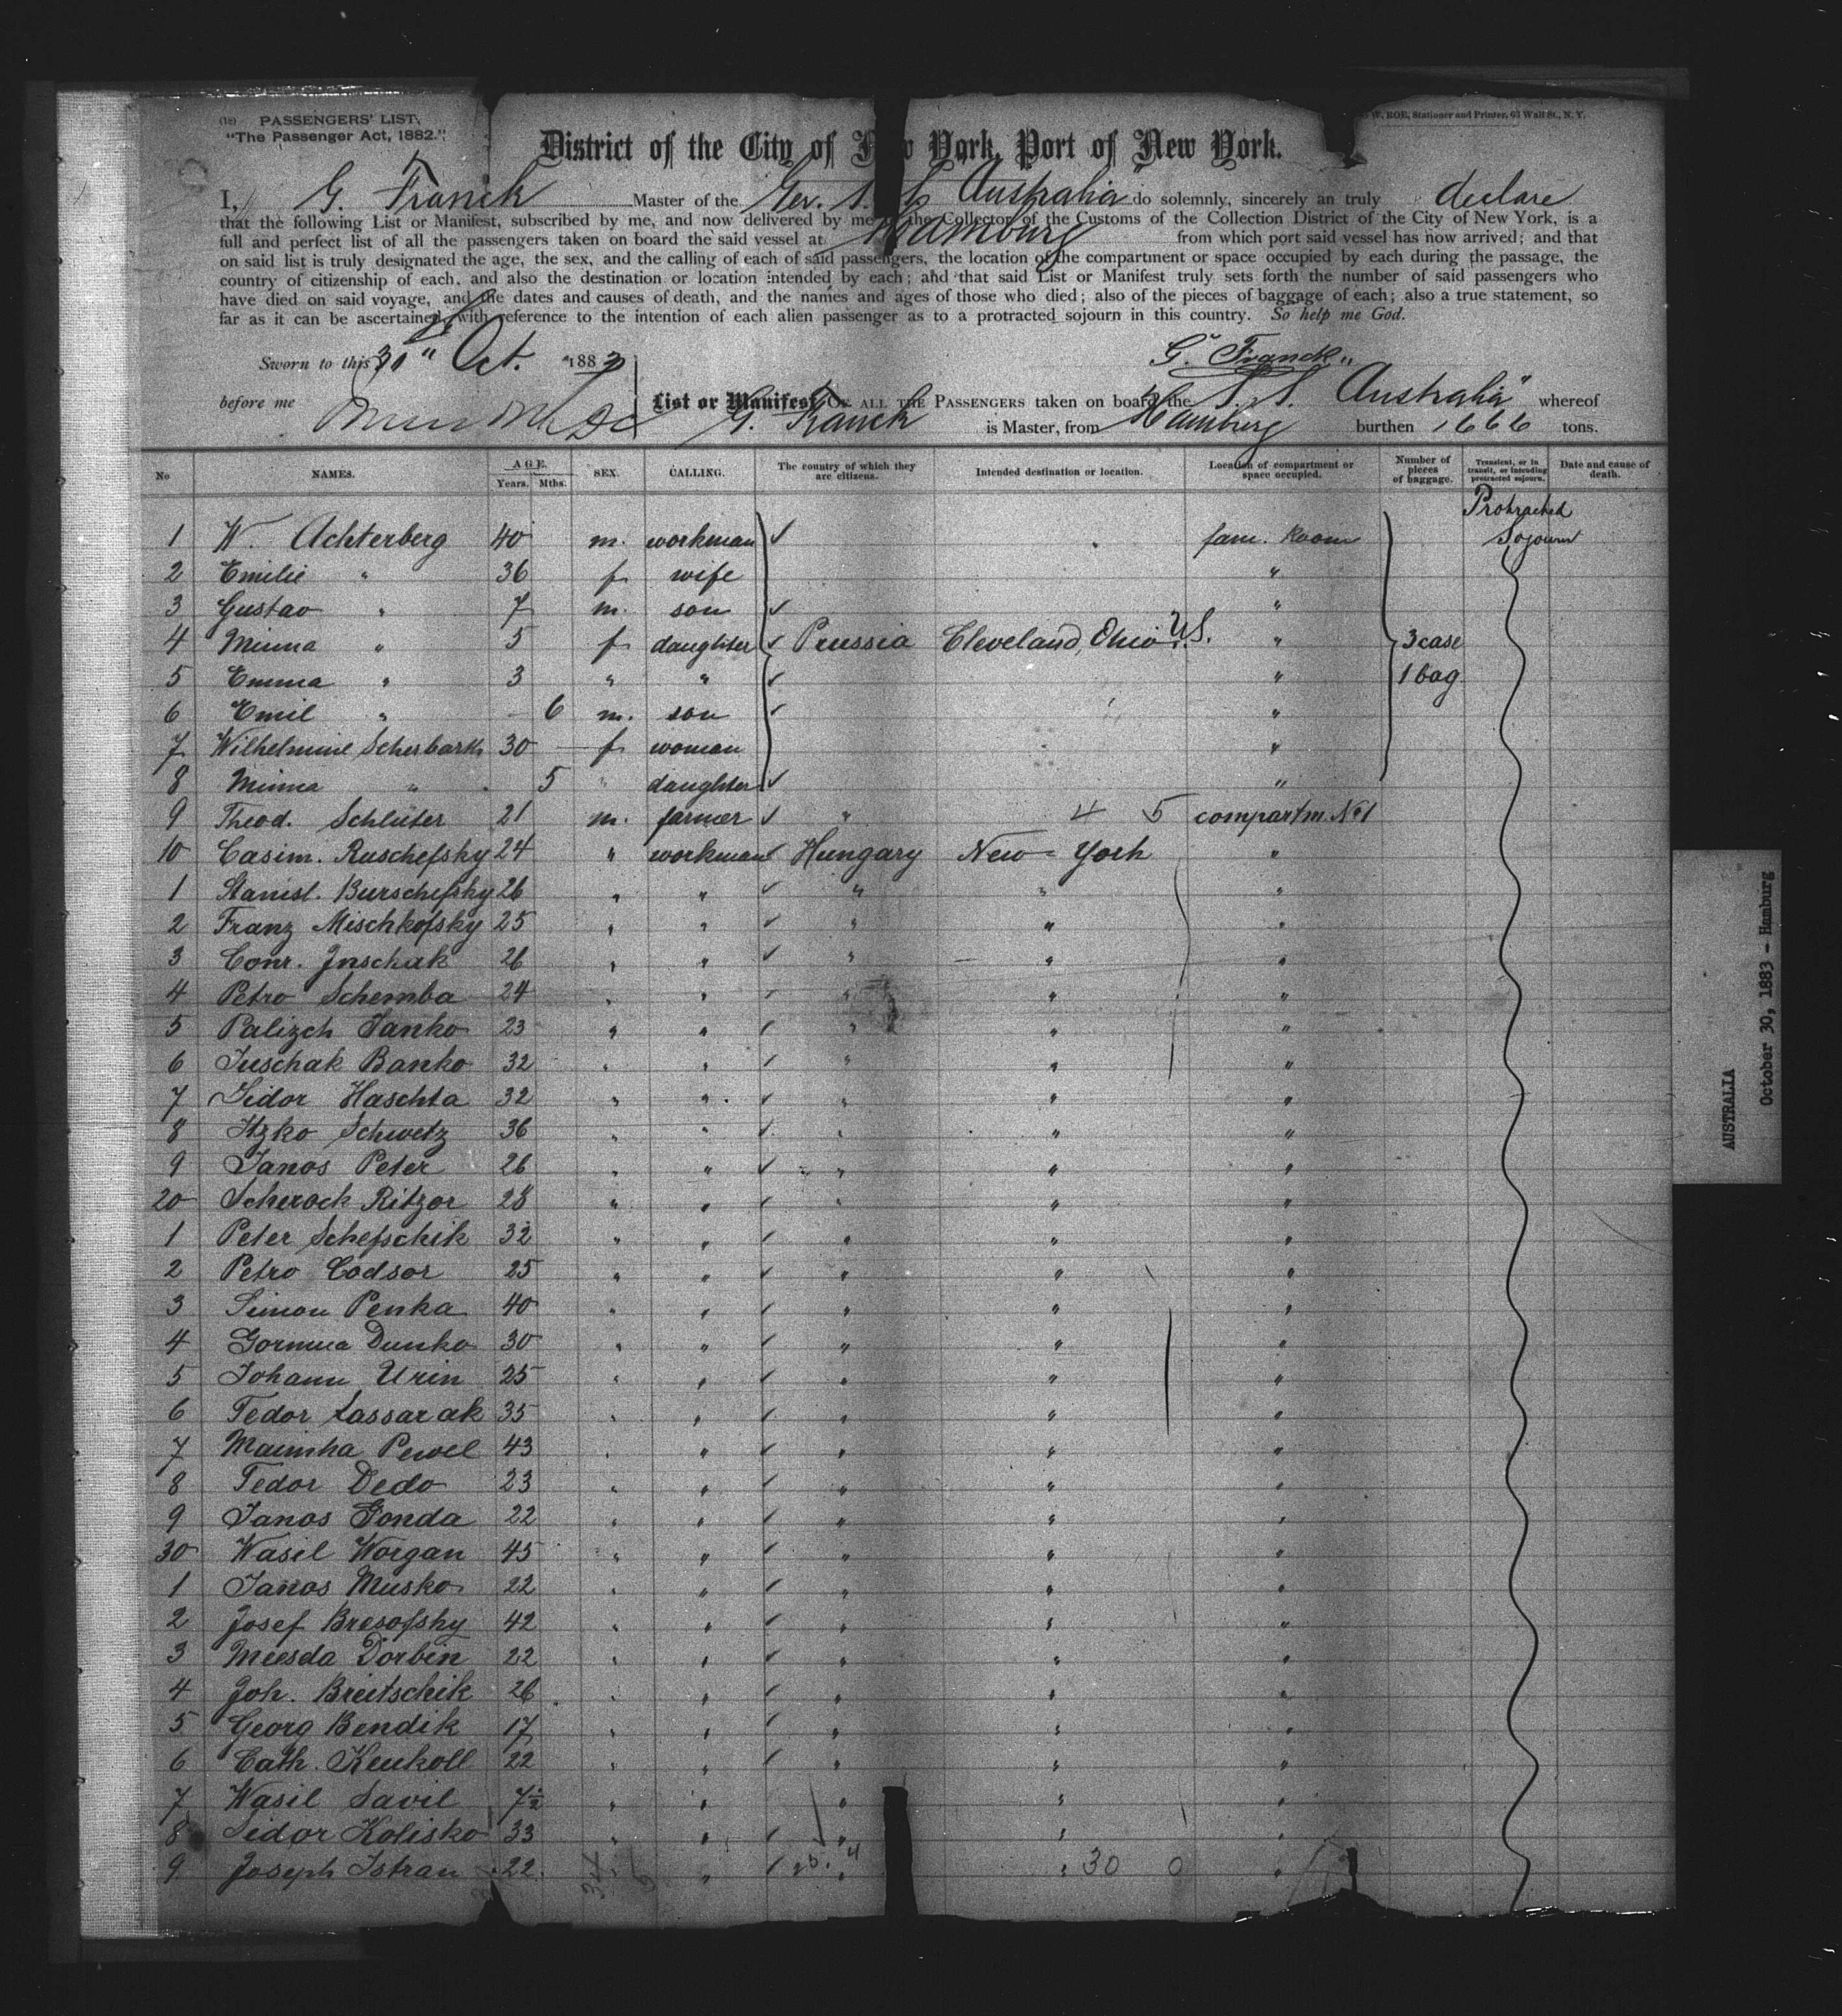 (18) PASSENGERS' LIST,
"The Passenger Act, 1882."
W. ROE, Stationer and Printer, 63 Wall St., N. Y.
District of the City of New York, Port of New York.
I, G. Franck Master of the Ger. S. S. "Australia" do solemnly, sincerely an truly declare
that the following List or Manifest, subscribed by me, and now delivered by me to the Collector of the Customs of the Collection District of the City of New York, is a
full and perfect list of all the passengers taken on board the said vessel at Hamburg from which port said vessel has now arrived; and that
on said list is truly designated the age, the sex, and the calling of each of said passengers, the location of the compartment or space occupied by each during the passage, the
country of citizenship of each, and also the destination or location intended by each; and that said List or Manifest truly sets forth the number of said passengers who
have died on said voyage, and the dates and causes of death, and the names and ages of those who died; also of the pieces of baggage of each; also a true statement, so
far as it can be ascertained, with reference to the intention of each alien passenger as to a protracted sojourn in this country. So help me God.
Sworn to this 30" Oct. 1883 G. Franck
before me
List or Manifest OF ALL THE PASSENGERS taken on board the S. S. Australia" whereof
G. Franck is Master, from Hamburg burthen 1666 tons.
No NAMES. AGE. Years. Mths. SEX. CALLING. The country of which they are citizens. Intended destination or location. Location of compartment or space occupied. Number of pieces of baggage. Transient, or in transit, or intending protracted sojourn. Date and cause of death.
Protracted
1 W. Achterberg 40 m. workman fam. Room Sojourn
2 Emilie " 36 f wife "
3 Gustav " 7 m. son "
4 Minna " 5 f daughter Prussia Cleveland, Ohio U.S. " 3 case
5 Emma " 3 " " " 1 bag
6 Emil " 6 m. son "
7 Wilhelmine Scherbarth 30 f woman "
8 Minna " 5 " daughter "
9 Theod. Schlüter 21 m. farmer " 4 5 compartm. No 1
10 Casim. Ruschefsky 24 " workman Hungary New-York "
1 Stanisl. Burschefsky 26 " " " " "
2 Franz Mischkofsky 25 " " " " "
3 Conr. Inschak 26 " " " " "
4 Petro Schemba 24 " " " " "
5 Palizch Janko 23 " " " " "
6 Juschak Banko 32 " " " " "
7 Sidor Haschta 32 " " " " "
8 Itzko Schwetz 36 " " " " "
9 Janos Peter 26 " " " " "
20 Scherock Ritzor 28 " " " " "
1 Peter Schefschik 32 " " " " "
2 Petro Codsor 25 " " " " "
3 Simon Penka 40 " " " " "
4 Gornua Dunko 30 " " " " "
5 Johann Urin 25 " " " " "
6 Fedor Lassarak 35 " " " " "
7 Maimha Pewel 43 " " " " "
8 Fedor Dedo 23 " " " " "
9 Janos Gonda 22 " " " " "
30 Wasil Worgan 45 " " " " "
1 Janos Musko 22 " " " " "
2 Josef Bresofsky 42 " " " " "
3 Miesda Dorbin 22 " " " " "
4 Joh. Breitschik 26 " " " " "
5 Georg Bendik 17 " " " " "
6 Cath. Keukoll 22 " " " " "
7 Wasil Savil 7½ " " " " "
8 Sidor Kolisko 33 " " " " "
9 Joseph Istran 22 " " " " 30 0 "
AUSTRALIA
October 30, 1883 - Hamburg